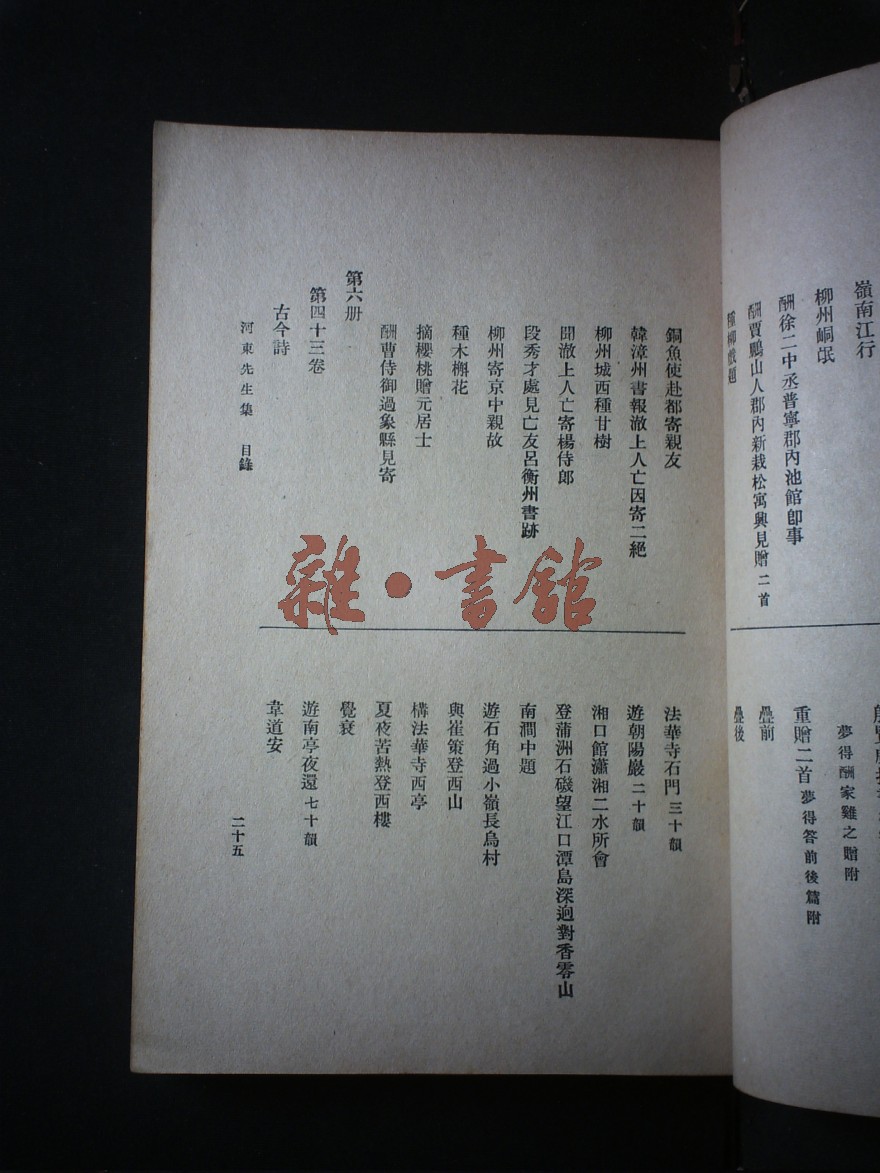 嶺南江行
柳州峒氓
酬徐二中丞普寧郡內池館卽事
酬賈鵬山人郡內新栽松寓興見贈二首
種柳戲題
夢得酬家雞之贈附
重贈二首夢得答前後篇附
疊前
疊後
銅魚使赴都寄親友
韓漳州書報澈上人亡因寄二絕
柳州城西種甘樹
聞澈上人亡寄楊侍郎
段秀才處見亡友呂衡州書跡
柳州寄京中親故
種木槲花
摘櫻桃贈元居士
酬曹侍御過象縣見寄
第六册
第四十三卷
古今詩
法華寺石門三十韻
遊朝陽巖二十韻
湘口館瀟湘二水所會
登蒲洲石磯望江口潭島深逈對香零山
南澗中題
遊石角過小嶺長烏村
與崔策登西山
構法華寺西亭
夏夜苦熱登西樓
覺衰
遊南亭夜還七十韻
韋道安
河東先生集 目錄
二十五
雜·書館